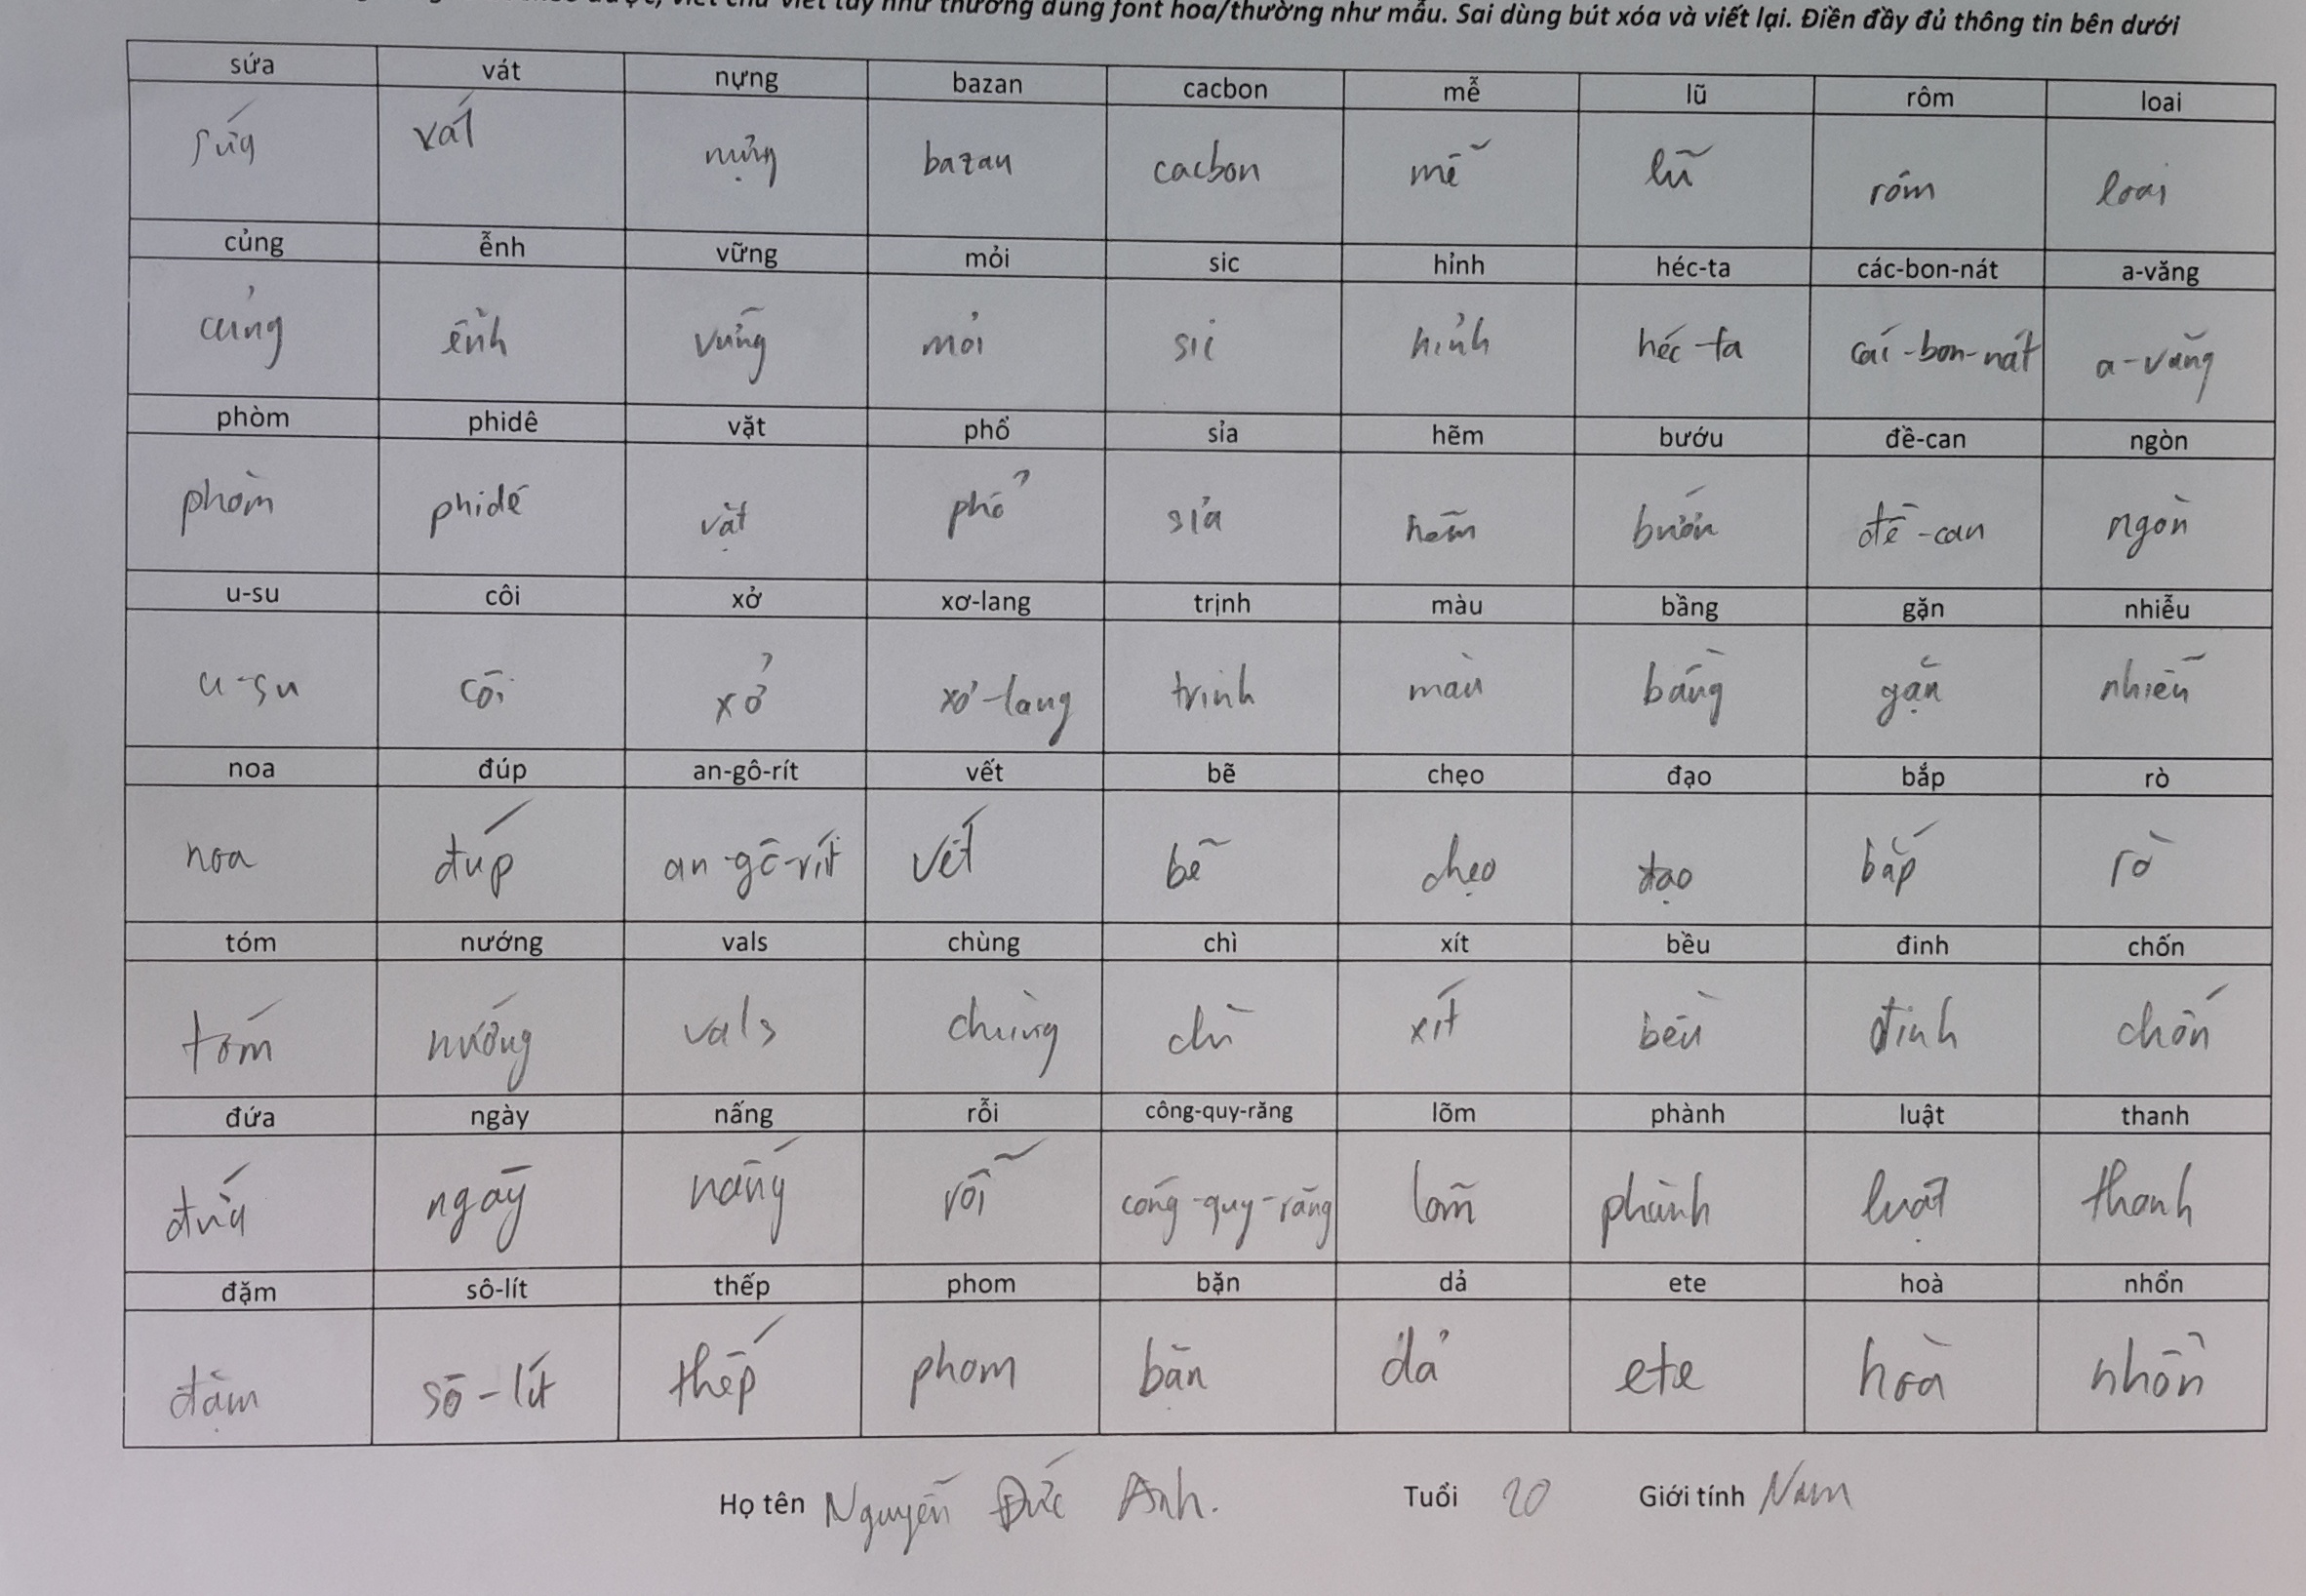 viết chữ viết tay như thường dùng font hoa/thường như mẫu. Sai dùng bút xóa và viết lại. Điền đầy đủ thông tin bên dưới
sứa vát nựng bazan cacbon mễ lũ rôm loai
sứa vát nựng bazan cacbon mễ lũ rôm loai
củng ễnh vững mỏi sic hỉnh héc-ta các-bon-nát a-văng
củng ễnh vững mỏi sic hỉnh héc-ta các-bon-nát a-văng
phòm phidê vặt phổ sỉa hẽm bướu đề-can ngòn
phòm phidê vặt phổ sỉa hẽm bướu đề-can ngòn
u-su côi xở xơ-lang trịnh màu bầng gặn nhiễu
u-su côi xở xơ-lang trinh màu bầng gặn nhiễu
noa đúp an-gô-rít vết bẽ chẹo đạo bắp rò
noa đúp an-gô-rít vết bẽ chẹo đạo bắp rò
tóm nướng vals chùng chì xít bều đinh chốn
tóm nướng vals chùng chì xít bều đinh chốn
đứa ngày nấng rỗi công-quy-răng lõm phành luật thanh
đứa ngày nấng rỗi công-quy-răng lõm phành luật thanh
đặm sô-lít thếp phom bặn dả ete hoà nhổn
đặm sô-lít thếp phom bặn dả ete hoà nhổn
Họ tên Nguyễn Đức Anh. Tuổi 20 Giới tính Nam